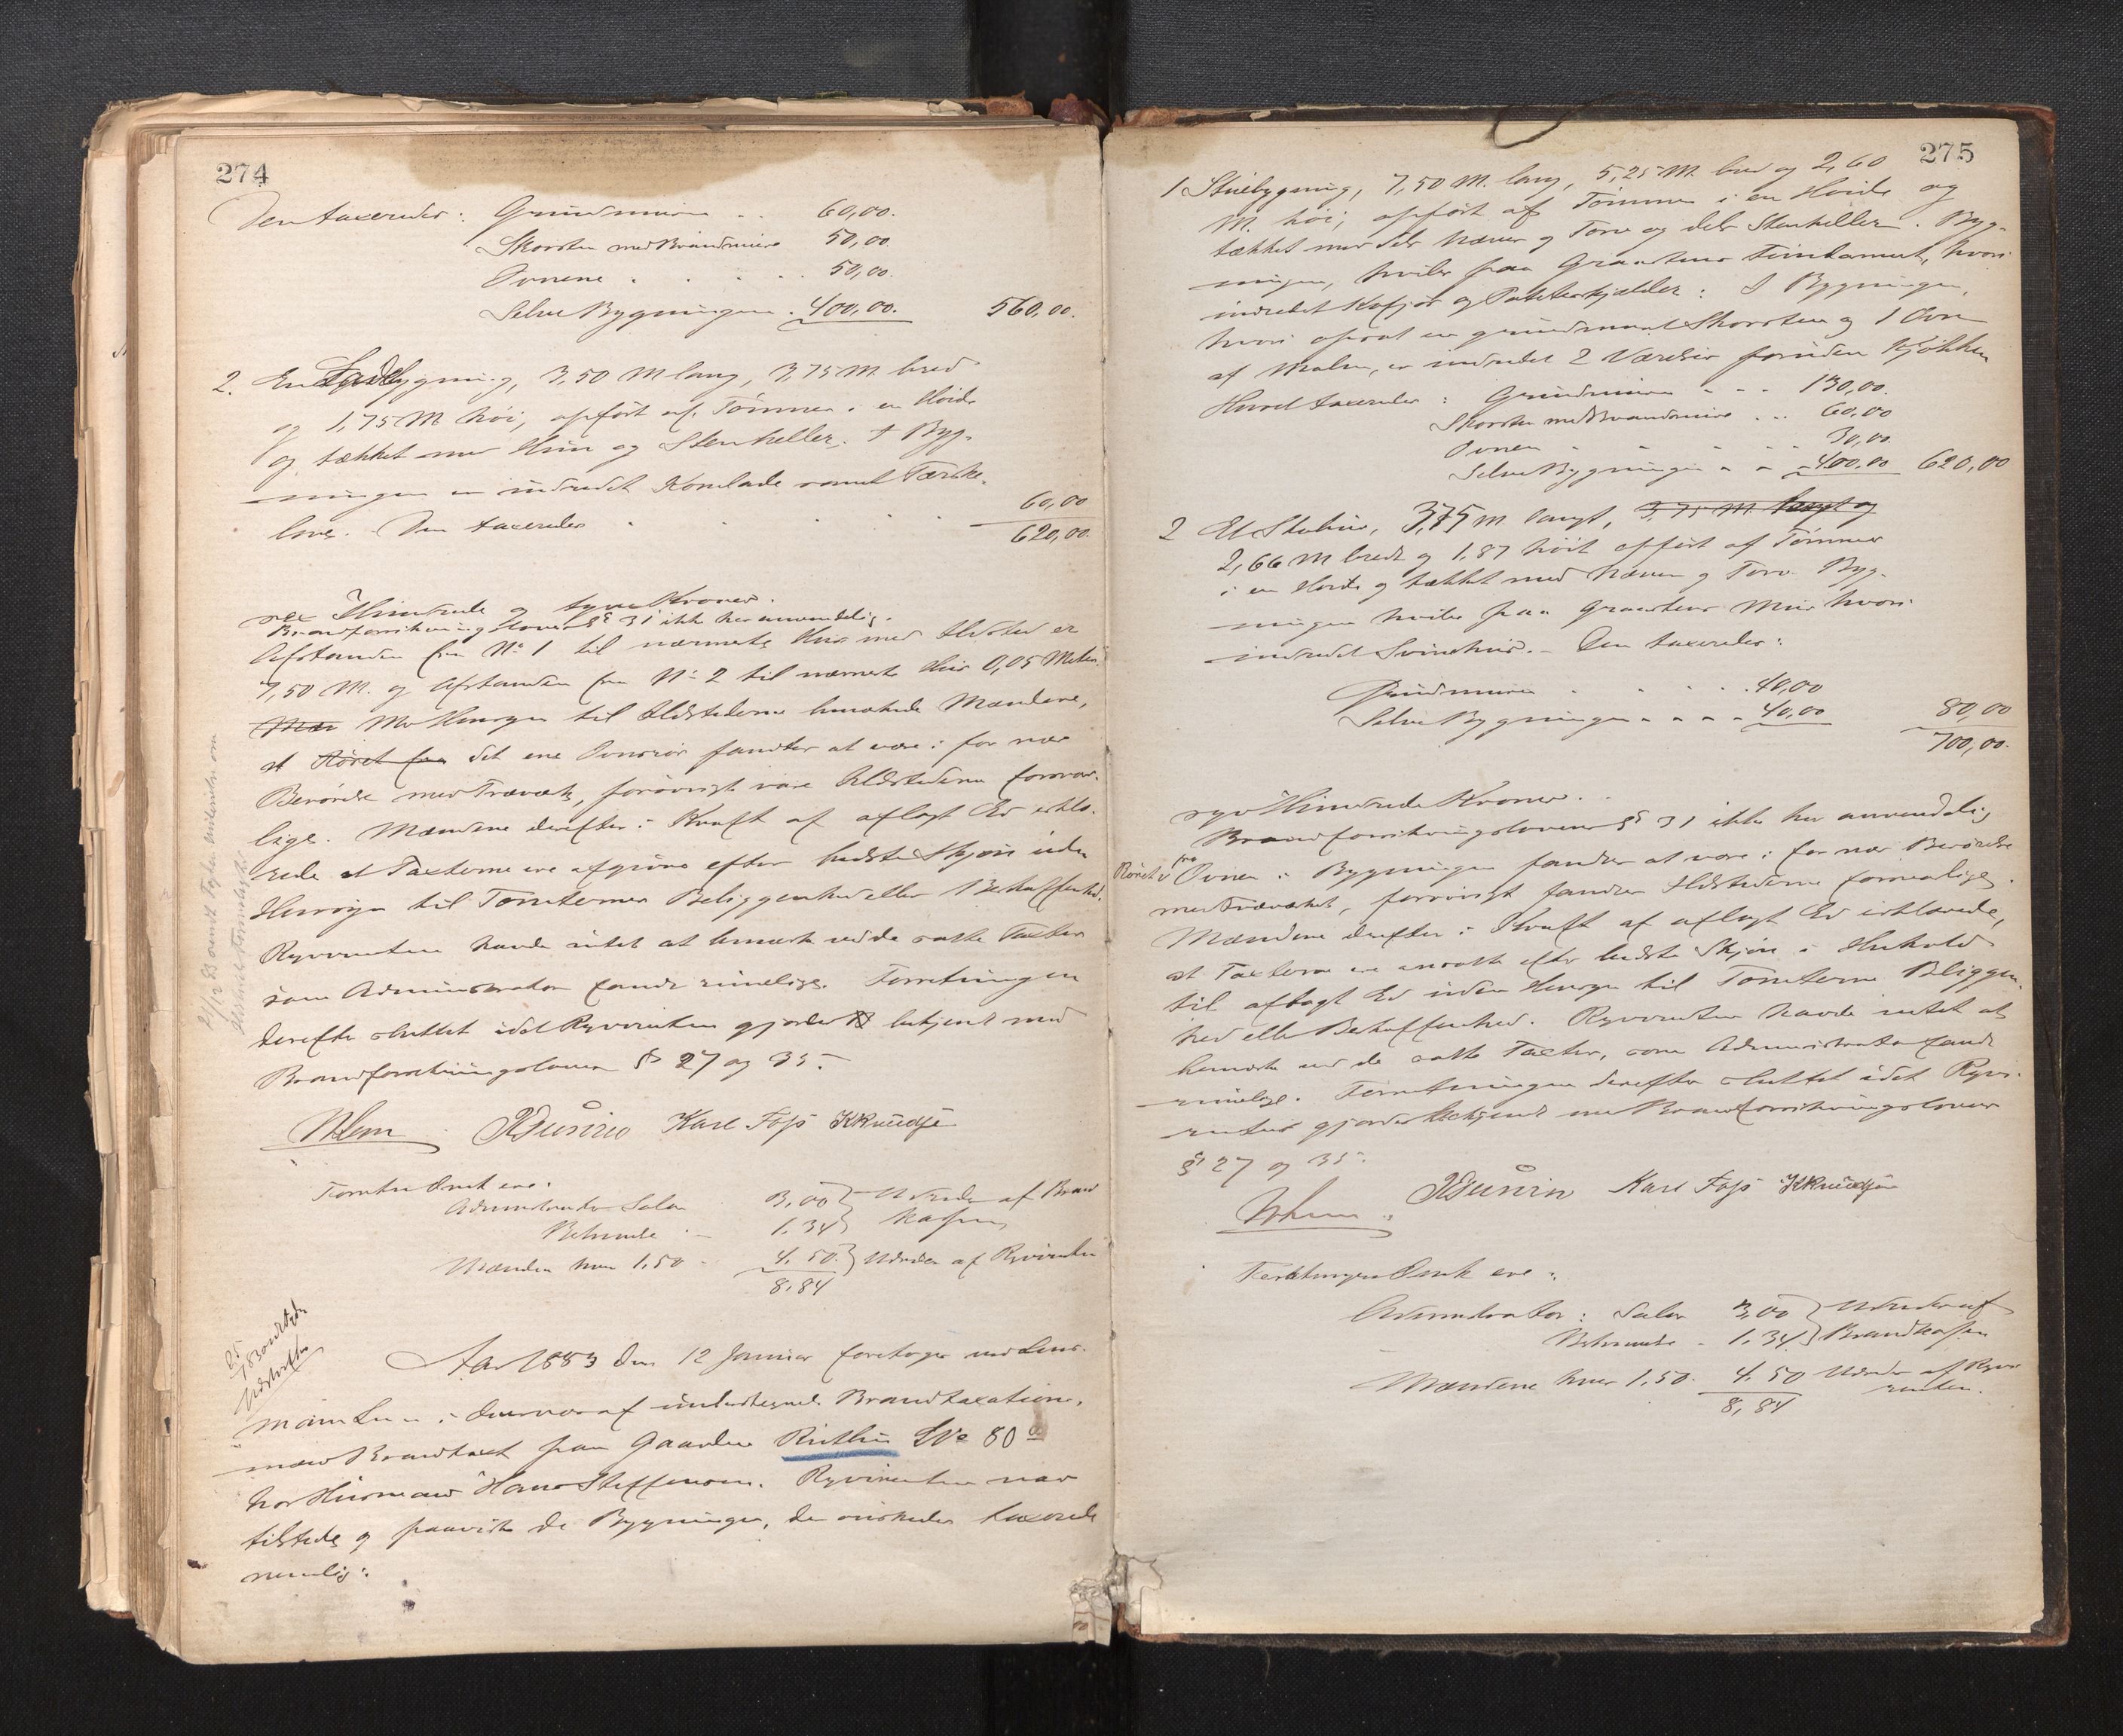 274
Den taxeredes: Grundmuren . . 60,00.
Skorsten med Brandmure 50,00
Ovnene . . . . . 50,00.
Selve Bygningen . 400,00. 560,00.
2. En Ladebygning, 3,50 M lang, 3,75 M. bred
og 1,75 M høi, opført af Tømmer i en Høide
og tækket med Hun og Stenheller. I Byg-
ningen er indredet Kornlade samt Tærske-
love. Den taxeredes . . . . 60,00
620,00.
sex Hundrede og tyve Kroner.
Brandforsikringslovens § 31 ikke her anvendelig.
Afstanden fra No 1 til nærmeste Hus med Ildsted er
7,50 M. og Afstanden fra No 2 til nærmeste Hus 0,05 Meter.
Med Hensyn til Ildstederne bemærkede Mændene,
at Røret fra det ene Ovnsrør fandtes at være i for nær
Berørelse med Træværk, forøvrigt vare Ildstederne forsvar-
lige. Mændene derefter i Kraft af aflagt Ed erklæ-
rede at Taxterne ere afgivne efter bedste Skjøn uden
Hensyn til Tomternes Beliggenhed eller Beskaffenhed.
Rqvirenten havde intet at bemærke ved de satte Taxter
som Administrator fandt rimelige. Forretningen
derefter sluttet idet Rqvirenten gjordes bekjendt med
Brandforsikringsloven § 27 og 35.
Karl Foss KKnudsen
Administrator Salær 3,00 } Udredes af Brand
1.34 } kassen
Mændene hver 1.50 - 4.50 } Udredes af Rqvirenten
8,84
Aar 1883 den 12 Januar foretoges ved Lens-
mand Lem i Overvær af undertegnede Brandtaxations-
mænd Brandtaxt paa Gaarden LNo 80
hos Husmand Hans Steffensen. Rqvirenten var
tilstede og paaviste de Bygninger, der ønskedes taxerede
nemlig:
275
1 Stuebygning, 7,50 M. lang, 5,25 M. bred og 2,60
M. høi, opført af Tømmer i en Høide og
tækket med dels Næver og Torv og dels Stenheller. Byg-
ningen, hviler paa Graastens Fundament, hvori
indredet og Potetkjælder. I Bygningen,
hvori opsat en grundmuret Skorsten og 1 Ovn
af Malm, er indredet 2 Værelser foruden Kjøkken
Hvorel taxeredes: Grundmuren - - - 130,00.
Skorsten med Brandmure . . . 60,00
Ovnen - - - - . . 30,00.
Selve Bygningen - - - 400.00 620,00
2 Et Stabur, 3,75 M. langt, 3,75 M. langt og
2,66 M bredt og 1.87 høit opført af Tømmer
i en Høide og tækket med Næver og Torv. Byg-
ningen hviler paa Graastens Mur hvori
indredet Svinehus. - Den taxeredes:
Grundmuren . . . . . 40,00
Selve Bygningen - - - - 40,00 80,00
700,00.
syv Hundrede Kroner. .
Brandforsikringslovens § 31 ikke her anvendelig
Røret fra Ovnen i Bygningen fandtes at være i for nær Berørelse
med Træværket, forøvrigt fandtes Ildstederne forsvarlige.
Mændene derefter i Kraft af aflagt Ed erklærede,
at Taxterne ere ansatte efter bedste Skjøn i Henhold
til aflagt Ed uden Hensyn til Tomterne Beliggen-
hed eller Beskaffenhed. Rqvirenten havde intet at
bemærke ved de satte Taxter, som Administrator fandt
rimelige. Forretningen derefter sluttet idet Rqvi-
renten gjordes bekjendt med Brandforsikringslovens
§ 27 og 35.
Karl Foss KKnudsen
Forretningens Omk ere:
Administrator: Salær 3,00 } Udredes af
1,34 } Brandkassen
Mændene hver 1,50. 4.50 Udredes af Rqvi
renten.
8,84